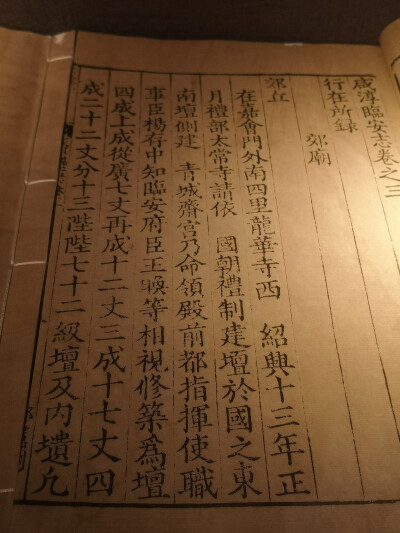 咸淳臨安志卷之三
行在所錄
郊廟
郊丘
在嘉會門外南四里龍華寺西　紹興十三年正
月禮部太常寺請依　國朝禮制建壇於國之東
南壇側建　青城齋宮乃命領殿前都指揮使職
事臣楊存中知臨安府臣王㬇等相視修築爲壇
四成上成從廣七丈再成十二丈三成十七丈四
成二十二丈分十三陛陛七十二級壇及内壝凡